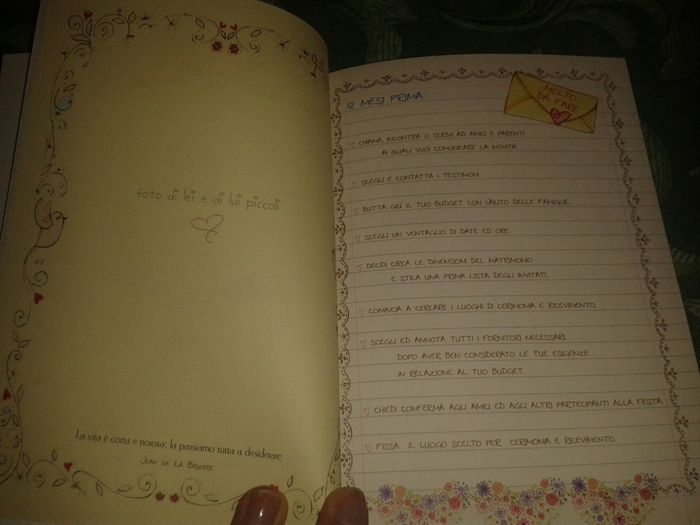 foto di lei e di lui piccoli
La vita è corta e noiosa; la passiamo tutta a desiderare.
JEAN DE LA BRUYERE
12 MESI PRIMA
MOLTO
DA FARE
CHIAMA INCONTRA O SCRIVI AD AMICI E PARENTI
AI QUALI VUOI COMUNICARE LA NOVITÀ.
SCEGLI E CONTATTA I TESTIMONI.
BUTTA GIÙ IL TUO BUDGET CON L'AIUTO DELLE FAMIGLIE.
SCEGLI UN VENTAGLIO DI DATE ED ORE.
DECIDI CIRCA LE DIMENSIONI DEL MATRIMONIO
E STILA UNA PRIMA LISTA DEGLI INVITATI.
COMINCIA A CERCARE I LUOGHI DI CERIMONIA E RICEVIMENTO.
SCEGLI ED ANNOTA TUTTI I FORNITORI NECESSARI
DOPO AVER BEN CONSIDERATO LE TUE ESIGENZE
IN RELAZIONE AL TUO BUDGET.
CHIEDI CONFERMA AGLI AMICI ED AGLI ALTRI PARTECIPANTI ALLA FESTA.
FISSA IL LUOGO SCELTO PER CERIMONIA E RICEVIMENTO.